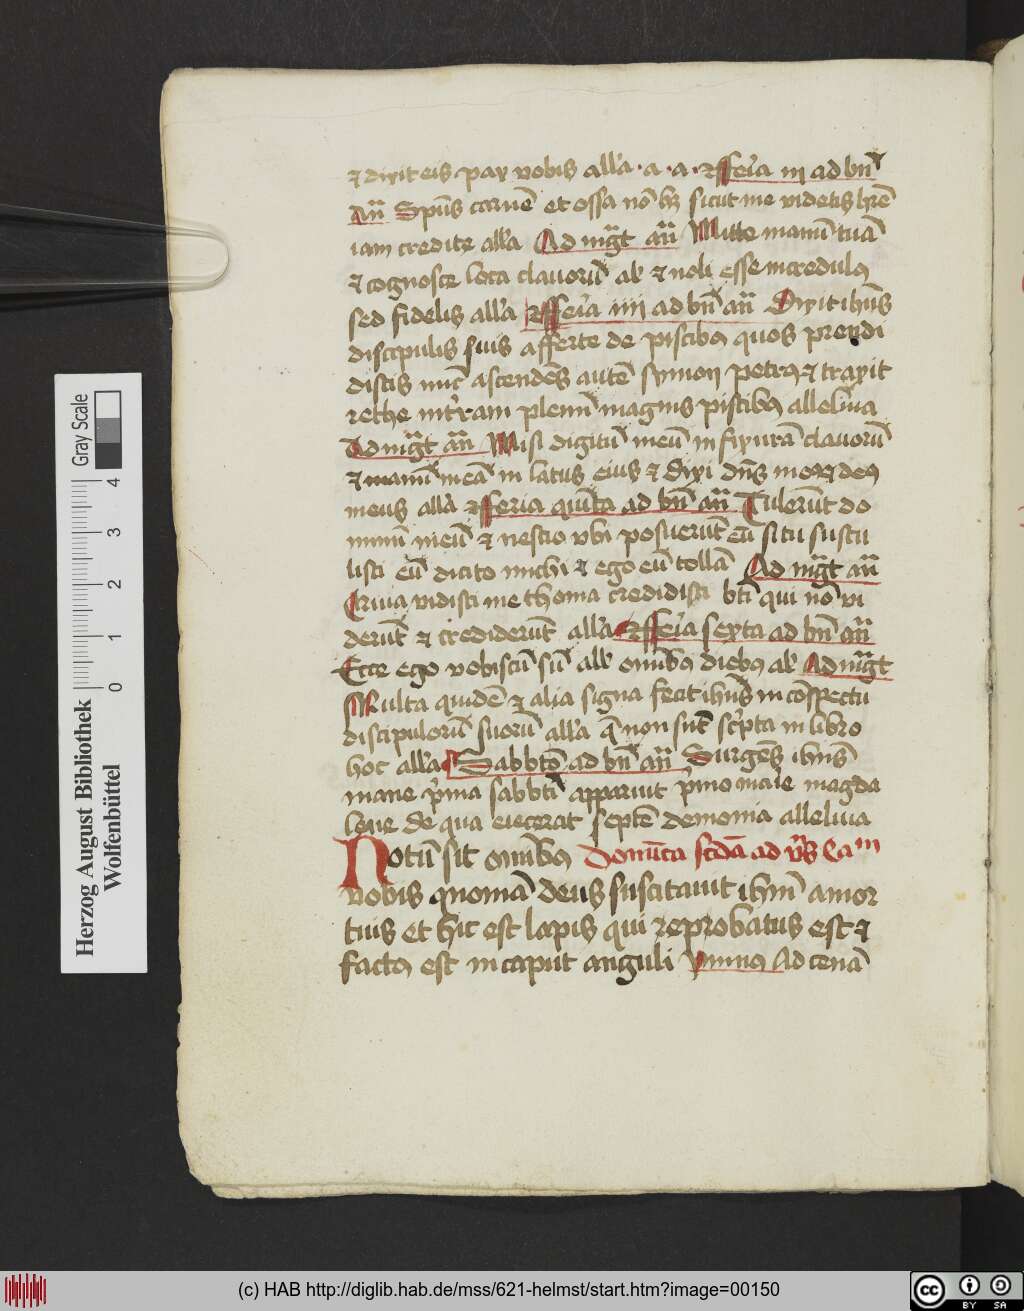 ⁊ dixit eis pax vobis all'a · a · a · Feria iij ad bn̄
an̄ Spūs carnē et ossa nō hꝫ sicut me videtis hr̄e
iam credite all'a Ad mgt an̄ Mitte manū tuā
⁊ cognosce loca clavorū al' ⁊ noli esse incredulꝯ
sed fidelis all'a Feria iiij ad bn̄ an̄ Dixit ihūs
discipulis suis afferte de piscibꝯ quos prendi
distis nūc ascendēs autē symon petrꝯ ⁊ traxit
rethe in t'ram plenū magnis piscibꝯ alleluia
Ad mgt an̄ Misi digitū meū in fixurā clavorū
⁊ manū meā in latus eius ⁊ dixi dn̄s meꝯ ⁊ deꝯ
meus all'a Feria quīta ad bn̄ an̄ Tulerūt do
minū meū ⁊ nescio vbi posuerūt eū si tu sustu
listi eū dicito michi ⁊ ego eū tollā Ad mgt an̄
Quia vidisti me thoma credidisti bti qui nō vi
derūt ⁊ crediderūt all'a Feria sexta ad bn̄ an̄
Ecce ego vobiscū sū all' omībꝯ diebꝯ al' Ad mgt
Multa quidē ⁊ alia signa fecit ihūs in cōspectu
discipulorū suorū all'a q̄ non sūt sc'pta in libro
hoc all'a Sabbto ad bn̄ an̄ Surgēs ihūs
mane p'ma sabbti apparuit p'mo marie magda
lene de qua eiecerat septē demonia alleluia
Notū sit omībꝯ Domīca scdā ad v̄s Ca^m
vobis quoniā deus suscitavit ihm̄ a mor
tuis et hic est lapis qui reprobatus est ⁊
factꝯ est in caput anguli ymnꝯ Ad cenā
Herzog August Bibliothek
Wolfenbüttel
Gray Scale
0 1 2 3 4
(c) HAB http://diglib.hab.de/mss/621-helmst/start.htm?image=00150
cc BY SA